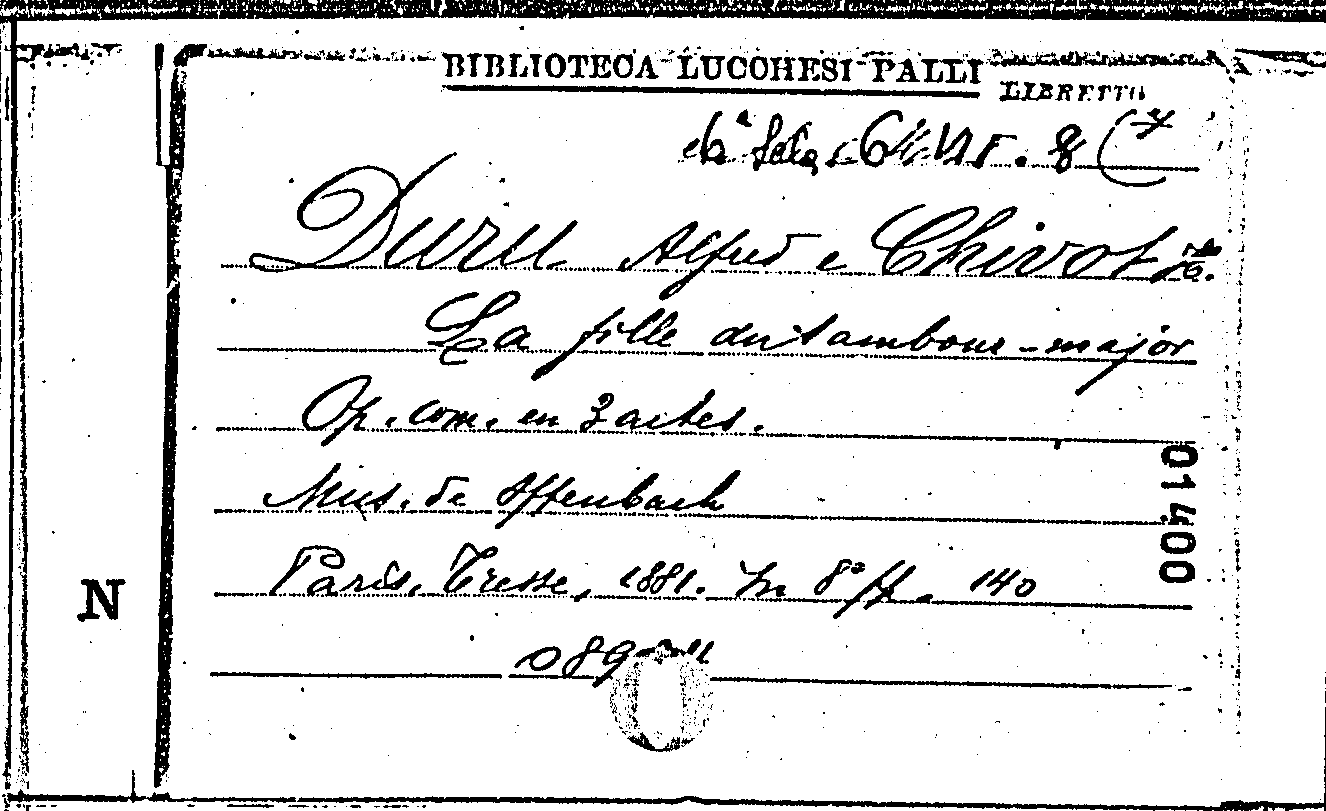 BIBLIOTECA LUCCHESI PALLI
LIBRETTO
6
8 (
Duru Alfred e Chivot
La fille du tambour-major
Op. com. en 3 actes.
Mus. de Offenbach
Paris, Tresse, 1881. In 8° pp. 140
089
01400
N